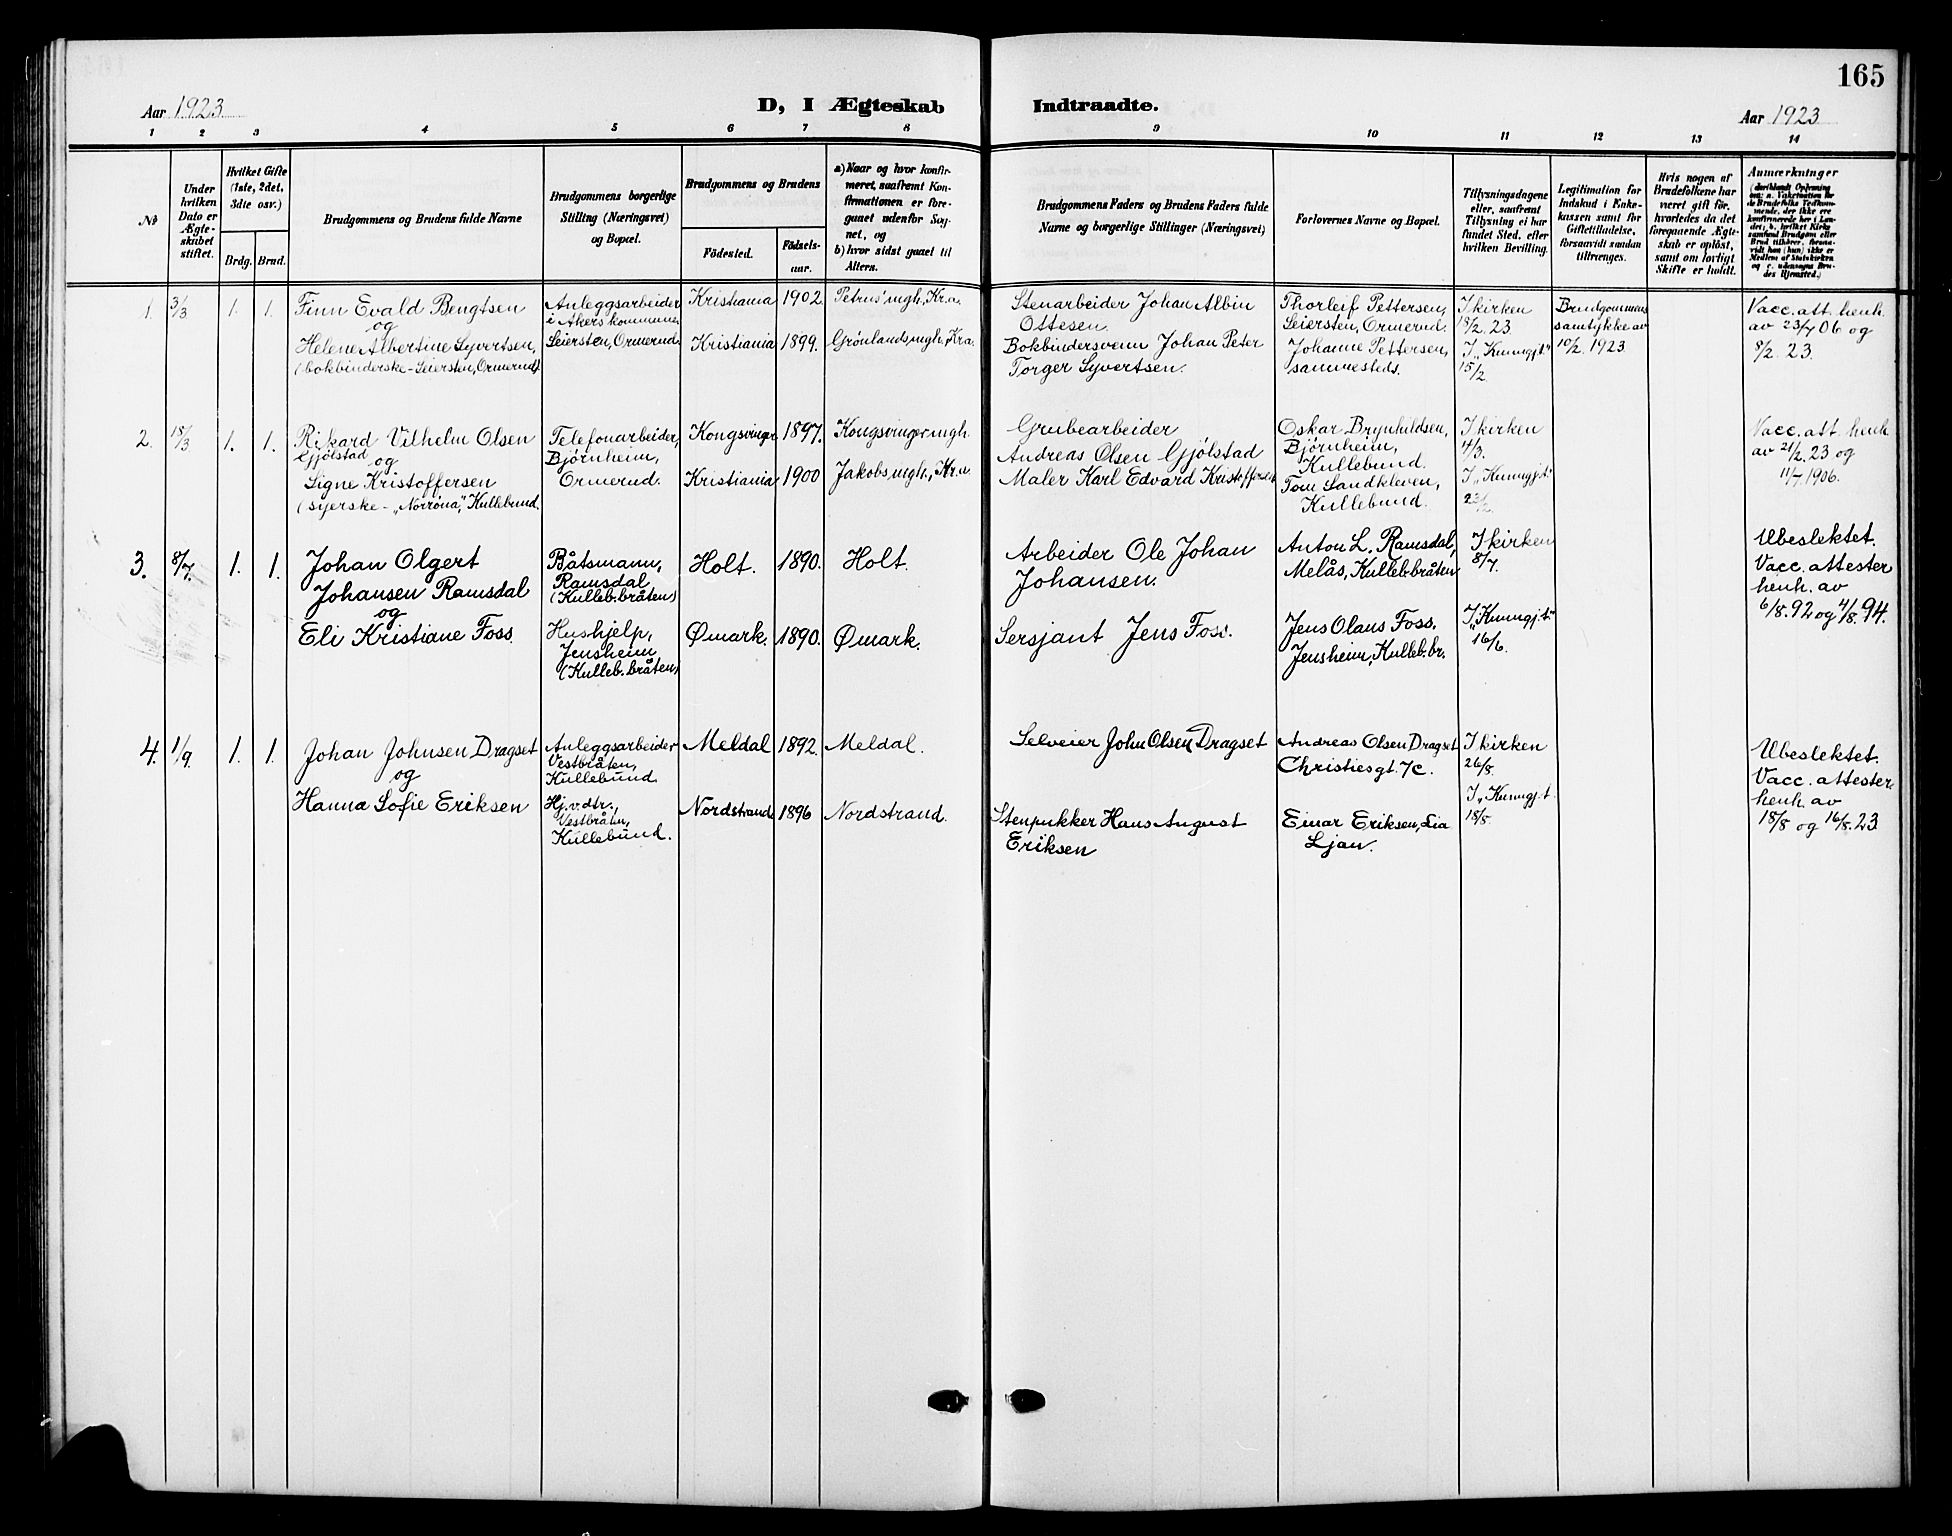 165
Aar 1923
D, I Ægteskab Indtraadte.
Aar 1923
1 2 3 4 5 6 7 8 9 10 11 12 13 14
№
Under
hvilken
Dato er
Ægte-
skabet
stiftet.
Hvilket Gifte
(1ste, 2det,
3dte osv.)
Brdg. Brud.
Brudgommens og Brudens fulde Navne
Brudgommens borgerlige
Stilling (Næringsvei)
og Bopæl.
Brudgommens og Brudens
Fødested.
Fødsels-
aar.
a) Naar og hvor konfir-
meret, saafremt Kon-
firmationen er fore-
gaaet udenfor Sog-
net, og
b) hvor sidst gaaet til
Alters.
Brudgommens Faders og Brudens Faders fulde
Navne og borgerlige Stillinger (Næringsvei)
Forlovernes Navne og Bopæl.
Tillysningsdagene
eller, saafremt
Tillysning ei har
fundet Sted, efter
hvilken Bevilling.
Legitimation for
Indskud i Enke-
kassen samt for
Giftetilladelse,
forsaavidt saadan
tiltrænges.
Hvis nogen af
Brudefolkene har
været gift før,
hvorledes da det
foregaaende Ægte-
skab er opløst,
samt om lovligt
Skifte er holdt.
Anmærkninger
1. 3/3 1. 1.
Finn Evald Bengtsen
og
Helene Albertine Syvertsen,
(bokbinderske - Seiersten, Ormerud).
Anleggsarbeider
i Akers kommune
Seiersten, Ormerud.
Kristiania 1902. Petrus' mgh., Kr.a.
Kristiania 1899. Grønlands mgh., Kr.a.
Stenarbeider Johan Albin
Ottesen.
Bokbindersvenn Johan Peter
Torger Syvertsen.
Thorleif Pettersen,
Seiersten, Ormerud.
Johanne Pettersen,
sammesteds.
I kirken
18/2. 23
I "Kunngj.t."
15/2.
Brudgommens
samtykke av
10/2. 1923.
Vacc. att. henh.
av 23/7 06 og
8/2. 23.
2. 18/3 1. 1.
Rikard Vilhelm Olsen
Gjølstad og
Signe Kristoffersen
(syerske - "Norrøna", Kullebund.
Telefonarbeider,
Bjørnheim,
Ormerud.
Kongsvinger 1897. Kongsvinger mgh.
Kristiania 1900 Jakobs mgh., Kr.a.
Grubearbeider
Andreas Olsen Gjølstad
Maler Karl Edvard Kristoffersen
Oskar Brynhildsen,
Bjørnheim,
Kullebund.
Tom Sandkleven,
Kullebund.
I kirken
4/3.
I "Kunngj.t."
23/2.
Vacc. att. henh.
av 21/2. 23 og
11/7. 1906.
3. 8/7. 1. 1.
Johan Olgert
Johansen Ramsdal
og
Eli Kristiane Foss.
Båtsmann,
Ramsdal
(Kulleb.bråten)
Hushjelp,
Jensheim
(Kulleb.bråten)
Holt. 1890. Holt.
Ømark. 1890. Ømark.
Arbeider Ole Johan
Johansen.
Sersjant Jens Foss.
Anton L. Ramsdal,
Melås, Kulleb.bråten
Jens Olaus Foss.
Jensheim, Kulleb.br.
I kirken
8/7.
I "Kunngj.t."
16/6.
Ubeslektet.
Vacc. attester
henh. av
6/8. 92 og 4/8. 94.
4. 1/9. 1. 1.
Johan Johnsen Dragset
og
Hanna Sofie Eriksen
Anleggsarbeider
Vestbråten,
Kullebund.
Hj.v.dtr.,
Vestbråtn,
Kullebund.
Meldal 1892. Meldal.
Nordstrand 1896 Nordstrand.
Selveier John Olsen Dragset
Stenpukker Hans August
Eriksen
Andreas Olsen Dragset
Christiesgt. 7c.
Einar Eriksen, Lia
Ljan.
I kirken
26/8.
I "Kunngj.t.
18/8.
Ubeslektet.
Vacc. attester
henh. av
18/8 og 16/8. 23